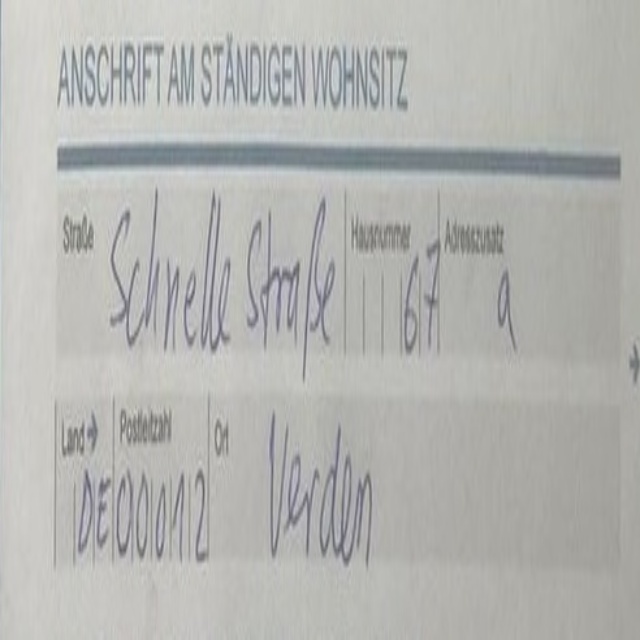 ANSCHRIFT AM STÄNDIGEN WOHNSITZ
Straße Schnelle Straße Hausnummer 67 Adresszusatz a
Land → DE Postleitzahl 00012 Ort Verden